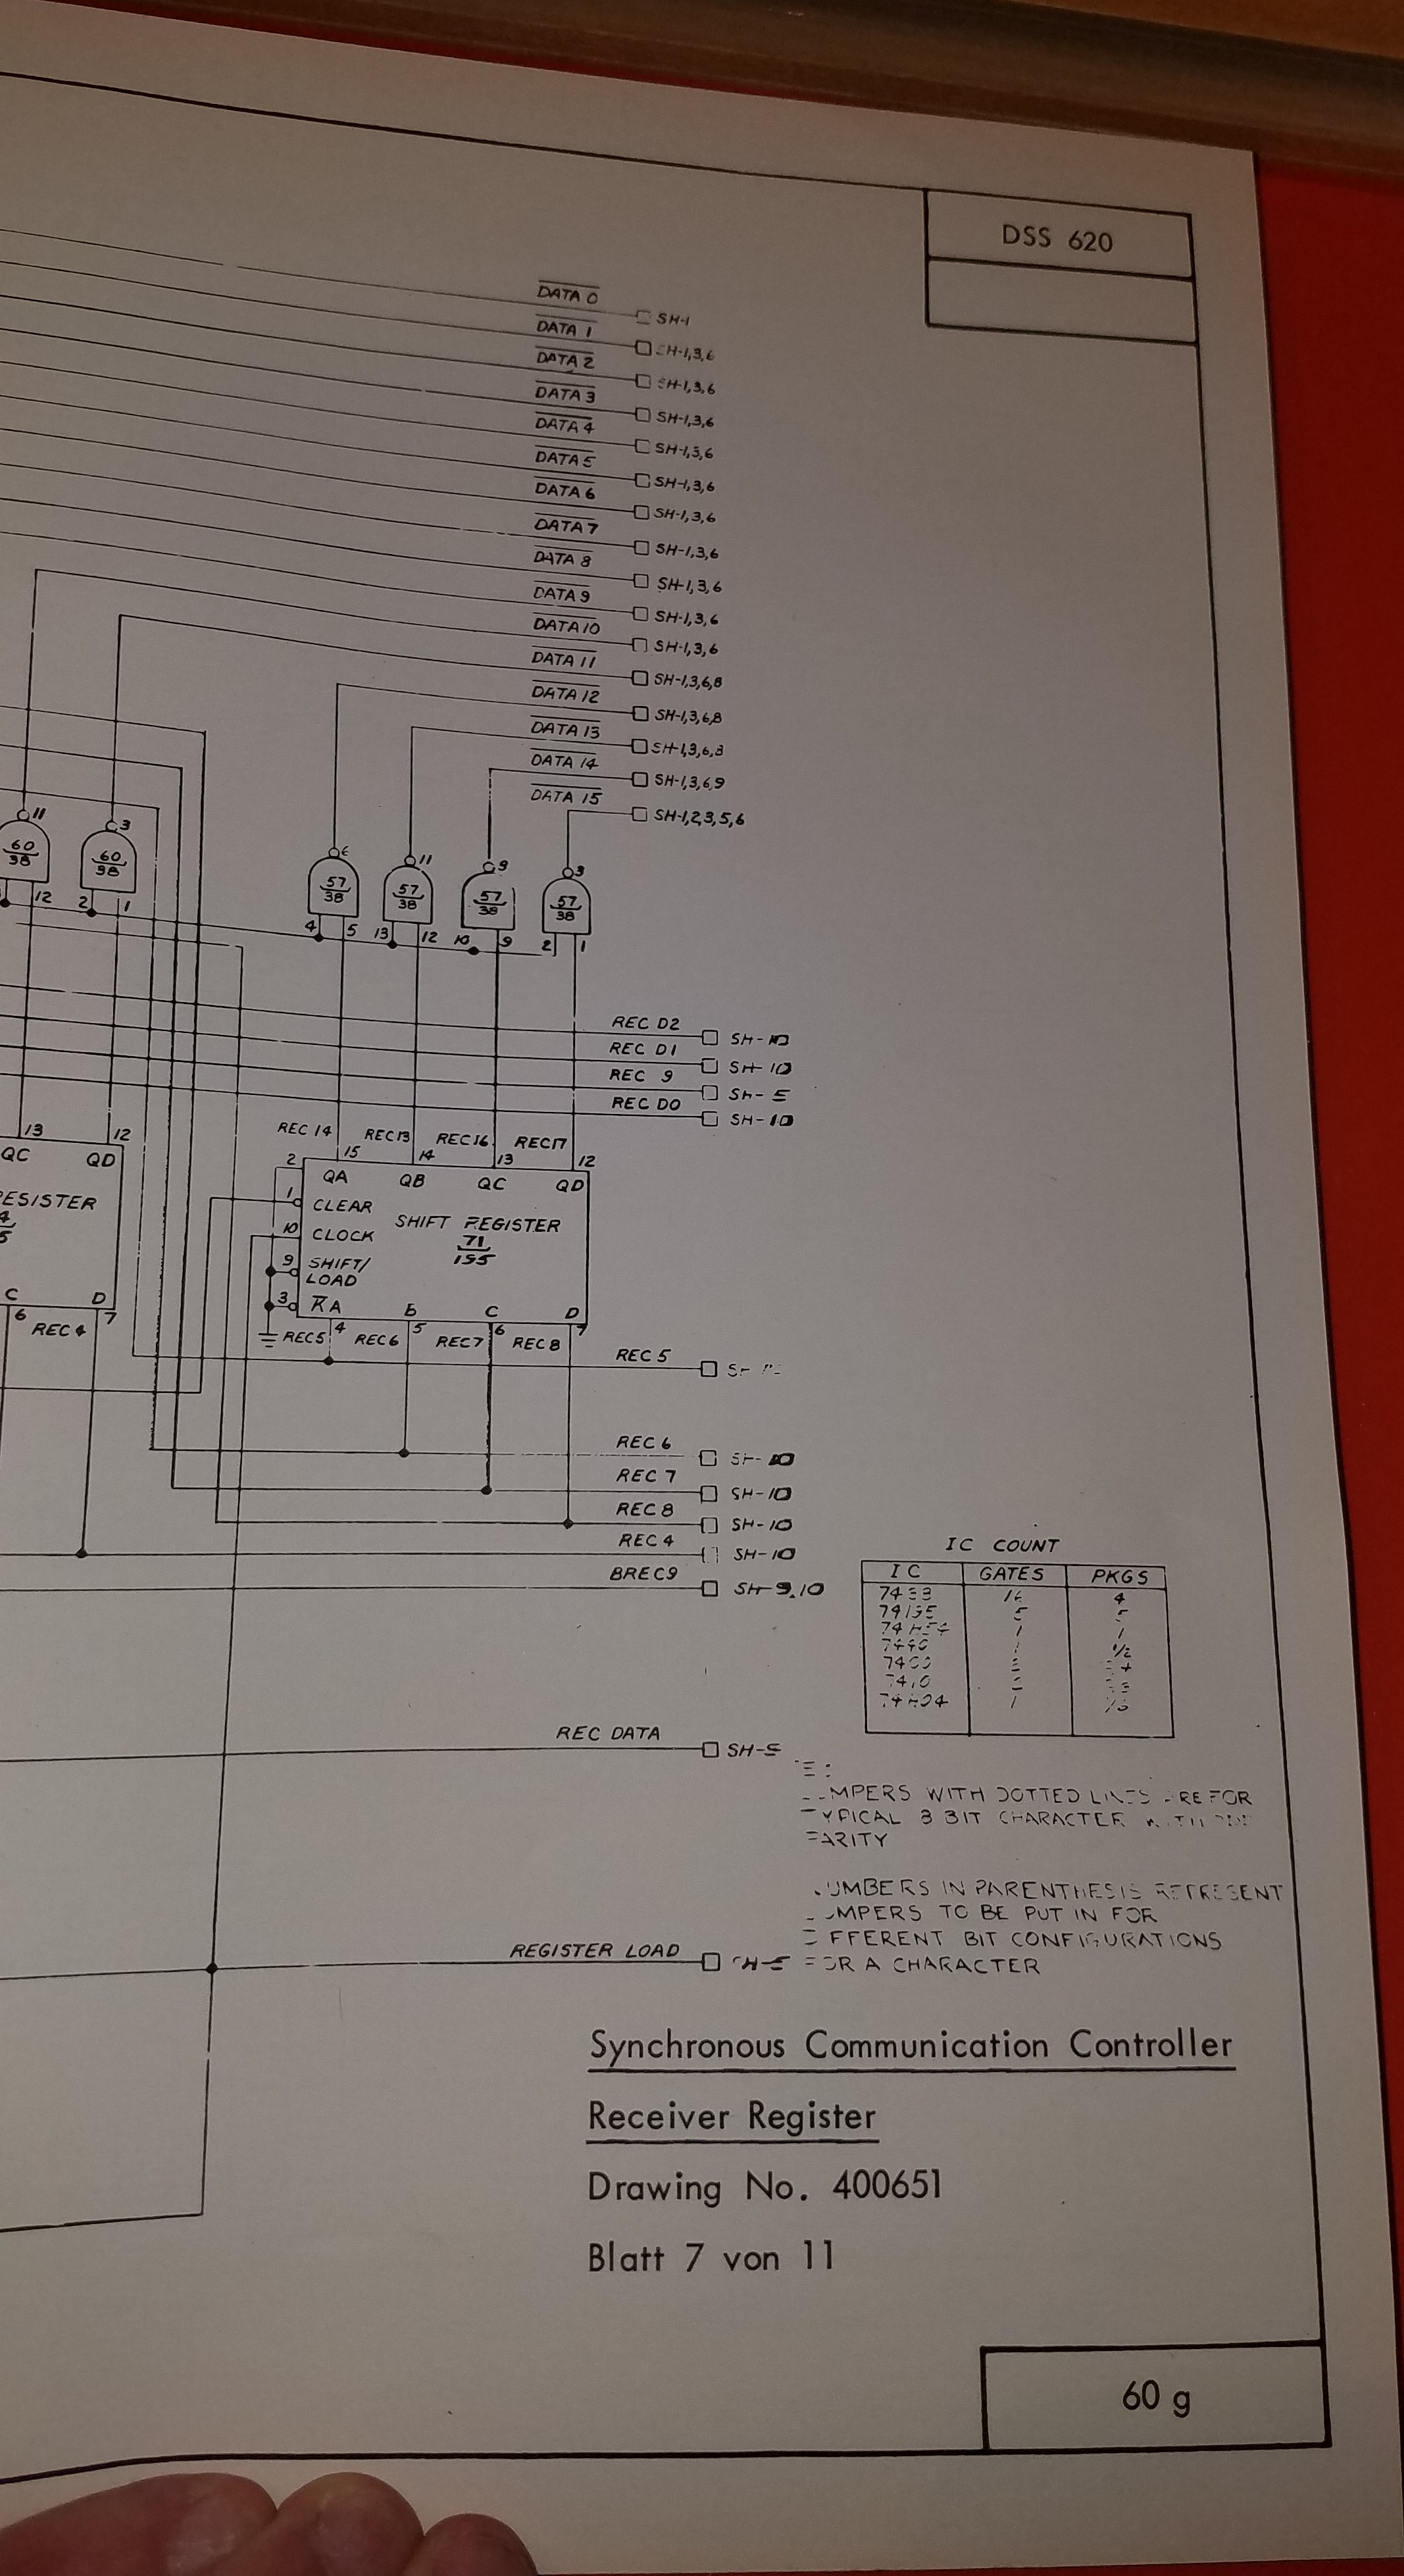 DSS 620
DATA 0 SH-1
DATA 1 SH-1,3,6
DATA 2 SH-1,3,6
DATA 3 SH-1,3,6
DATA 4 SH-1,3,6
DATA 5 SH-1,3,6
DATA 6 SH-1,3,6
DATA 7 SH-1,3,6
DATA 8 SH-1,3,6
DATA 9 SH-1,3,6
DATA 10 SH-1,3,6
DATA 11 SH-1,3,6,8
DATA 12 SH-1,3,6,8
DATA 13 SH-1,3,6,8
DATA 14 SH-1,3,6,9
DATA 15 SH-1,2,3,5,6
11 3 6 11 9 3
60 60 57 57 57 57
38 38 38 38 38 38
12 2 1 4 5 13 12 10 9 2 1
REC D2 SH-10
REC D1 SH-10
REC 9 SH-5
REC D0 SH-10
REC 14 REC 13 REC 16 REC 17
13 12 2 15 14 13 12
QC QD QA QB QC QD
1 CLEAR
10 CLOCK SHIFT REGISTER
71
195
9 SHIFT/
LOAD
3 KA B C D
C D
6 REC 4 7
REC 5 4 REC 6 5 REC 7 6 REC 8 7
REC 5
REC 6 SH-10
REC 7 SH-10
REC 8 SH-10
REC 4 SH-10
BREC9 SH-9,10
IC COUNT
IC GATES PKGS
7438 16 4
74195 5 5
1 1
7440 1 1/2
7400
7410
74H04 1
REC DATA SH-5
MPERS WITH DOTTED LINES ARE FOR
TYPICAL 8 BIT CHARACTER WITH
PARITY
NUMBERS IN PARENTHESIS REPRESENT
JUMPERS TO BE PUT IN FOR
DIFFERENT BIT CONFIGURATIONS
FOR A CHARACTER
REGISTER LOAD SH-5
Synchronous Communication Controller
Receiver Register
Drawing No. 400651
Blatt 7 von 11
60 g